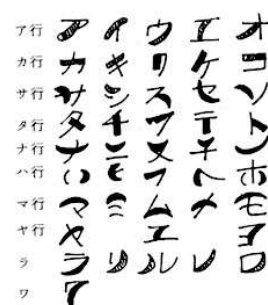 ア行 ア イ ウ エ オ
カ行 カ キ ク ケ コ
サ行 サ シ ス セ ソ
タ行 タ チ ツ テ ト
ナ行 ナ ニ ヌ ネ ノ
ハ行 ハ ヒ フ ヘ ホ
マ行 マ ミ ム メ モ
ヤ行 ヤ エ ヨ
ラ ラ リ ル レ ロ
ワ ワ